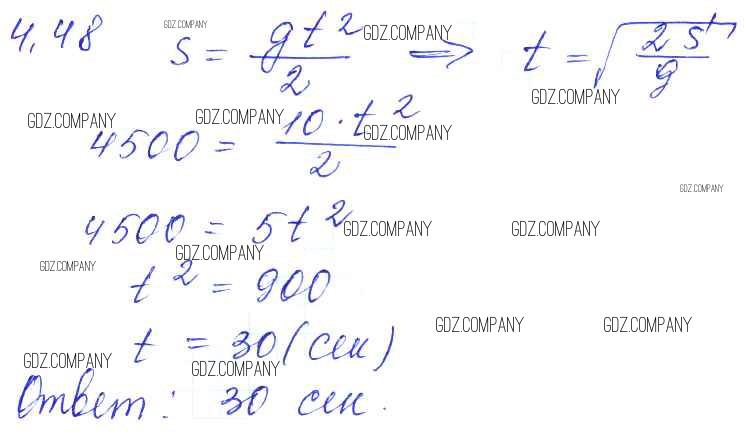 4.48 GDZ.COMPANY s = gt²/2 GDZ.COMPANY ⇒ t = √(2s/g)
GDZ.COMPANY
GDZ.COMPANY GDZ.COMPANY GDZ.COMPANY
4500 = 10·t²/2
GDZ.COMPANY
4500 = 5t² GDZ.COMPANY GDZ.COMPANY
GDZ.COMPANY
GDZ.COMPANY
t² = 900
GDZ.COMPANY GDZ.COMPANY
t = 30 (сек)
GDZ.COMPANY GDZ.COMPANY
Ответ: 30 сек.